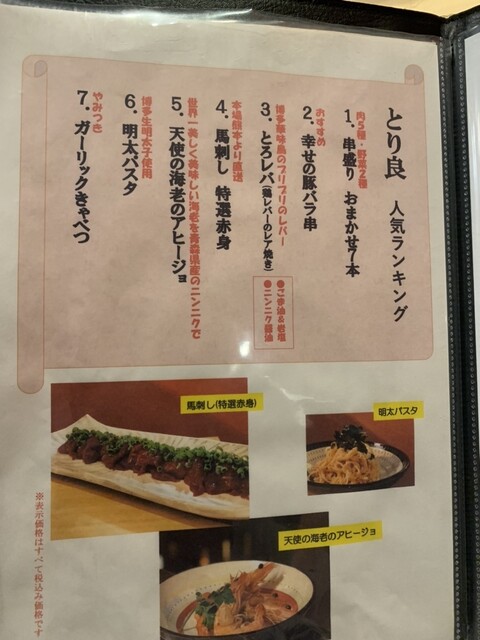 とり良　人気ランキング
肉5種・野菜2種
1. 串盛り おまかせ7本
おすすめ
2. 幸せの豚バラ串
博多華味鳥のプリプリのレバー
3. とろレバ(鶏レバーのレア焼き)
●ごま油&岩塩
●ニンニク醤油
本場熊本より直送
4. 馬刺し 特選赤身
世界一美しく美味しい海老を青森県産のニンニクで
5. 天使の海老のアヒージョ
博多生明太子使用
6. 明太パスタ
やみつき
7. ガーリックきゃべつ
馬刺し(特選赤身)
明太パスタ
天使の海老のアヒージョ
※表示価格はすべて税込み価格です